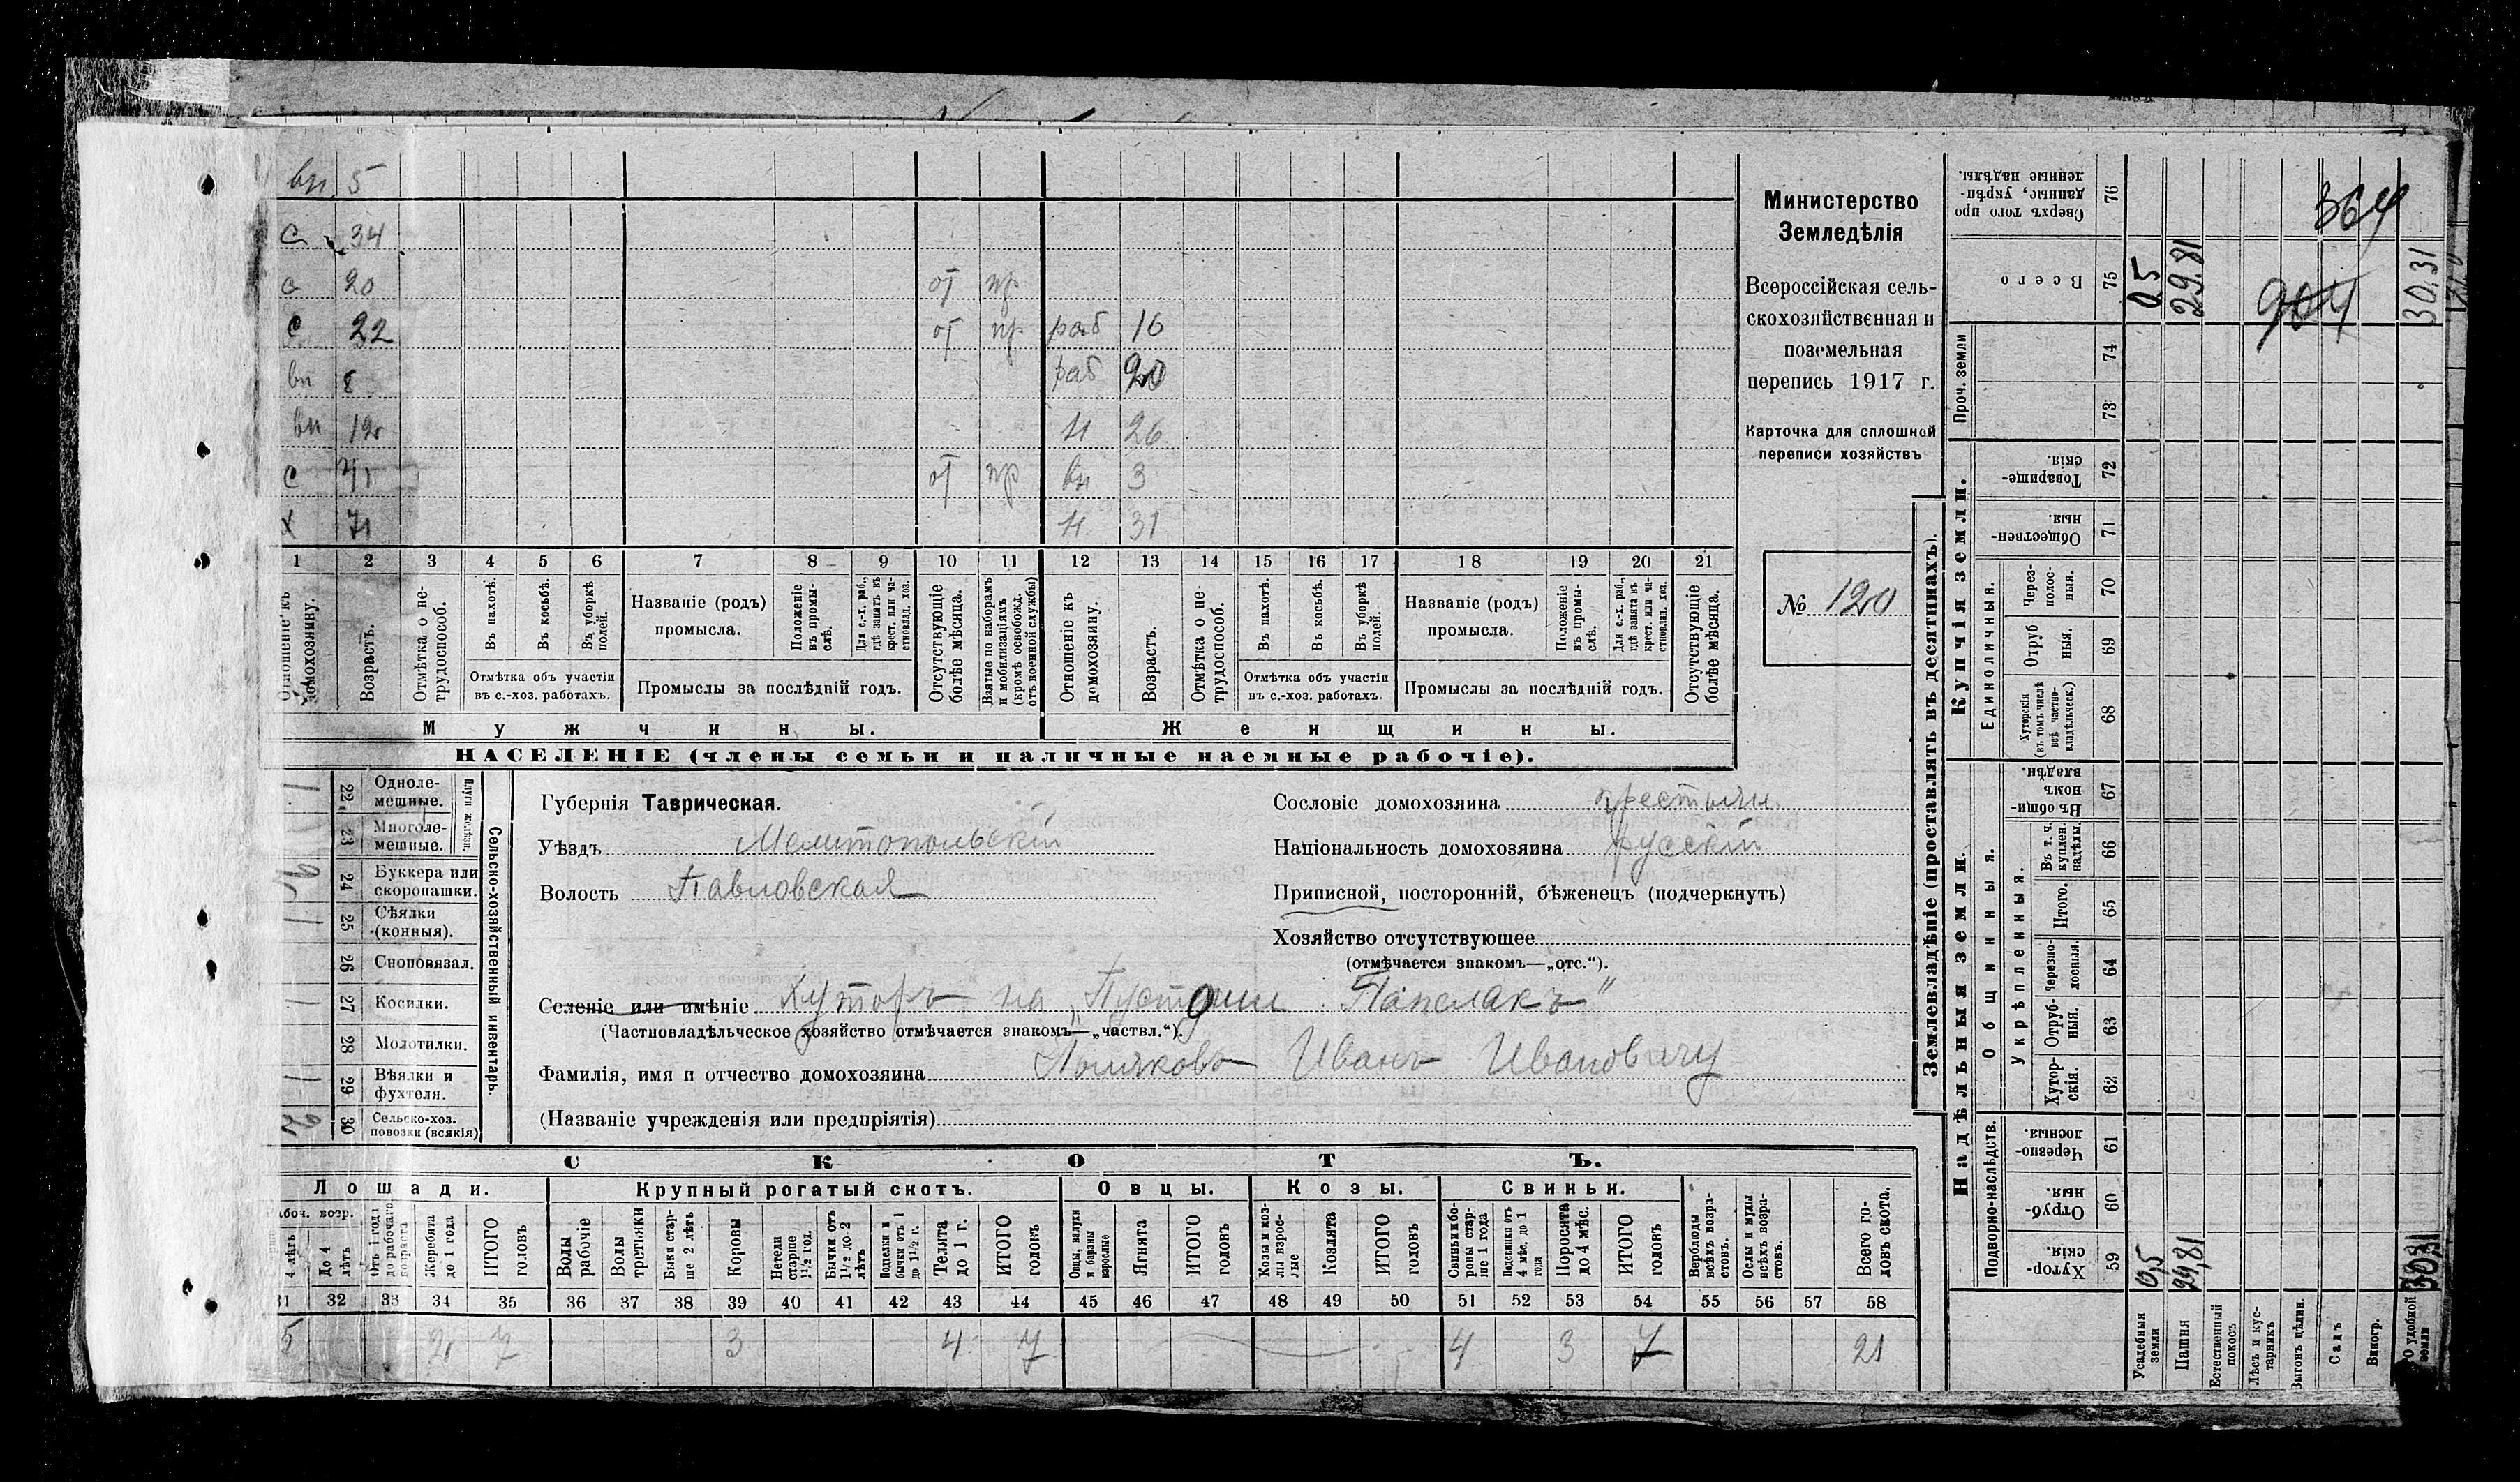 вн 5
с 34
с 20 от пр
с 22 от пр раб 16
вн 8 раб 20
вн 12 н 26
с 41 от пр вн 3
х 71 н 31
1 2 3 4 5 6 7 8 9 10 11 12 13 14 15 16 17 18 19 20 21
Отношеніе къ домохозяину.
Возрастъ.
Отмѣтка о нетрудоспособ.
Въ пахотѣ.
Въ косьбѣ.
Въ уборкѣ полей.
Названіе (родъ) промысла.
Положеніе въ промыслѣ.
Для с.-х. раб., гдѣ занятъ въ крест. или частновлад. хоз.
Отсутствующіе болѣе мѣсяца.
Взятые по наборамъ и мобилизаціямъ (кромѣ освобожд. отъ военной службы)
Отношеніе къ домохозяину.
Возрастъ.
Отмѣтка о нетрудоспособ.
Въ пахотѣ.
Въ косьбѣ.
Въ уборкѣ полей.
Названіе (родъ) промысла.
Положеніе въ промыслѣ.
Для с.-х. раб., гдѣ занята въ крест. или частновлад. хоз.
Отсутствующіе болѣе мѣсяца.
Отмѣтка объ участіи въ с.-хоз. работахъ.
Промыслы за послѣдній годъ.
Отмѣтка объ участіи въ с.-хоз. работахъ.
Промыслы за послѣдній годъ.
Мужчины.
Женщины.
НАСЕЛЕНІЕ (члены семьи и наличные наемные рабочіе).
Министерство
Земледѣлія
Всероссійская сель-
скохозяйственная и
поземельная
перепись 1917 г.
Карточка для сплошной
переписи хозяйствъ
№ 120
Сельско-хозяйственный инвентарь.
Плуги желѣзн.
1 22 Однолемешные.
23 Многолемешные.
2 24 Буккера или скоропашки.
1 25 Сѣялки (конныя).
26 Сноповязал.
1 27 Косилки.
28 Молотилки.
1 29 Вѣялки и фухтеля.
2 30 Сельско-хоз. повозки (всякія)
Губернія Таврическая.
Уѣздъ Мелитопольскій
Волость Павловская
Сословіе домохозяина крестьян.
Національность домохозяина русскій
Приписной, посторонній, бѣженецъ (подчеркнуть)
Хозяйство отсутствующее
(отмѣчается знакомъ—„отс.“).
Селеніе или имѣніе Хуторъ на „Пустоши
(Частновладѣльческое хозяйство отмѣчается знакомъ—„частвл.“).
Фамилія, имя и отчество домохозяина Иванъ Ивановичу
(Названіе учрежденія или предпріятія)
СКОТЪ.
Лошади. Крупный рогатый скотъ. Овцы. Козы. Свиньи.
Рабоч. возр.
4 лѣтъ
До 4 лѣтъ
Отъ 1 года до рабочаго возраста
Жеребята до 1 года
ИТОГО головъ
Волы рабочіе
Волы третьяки
Быки старше 2 лѣтъ
Коровы
Нетели старше 1½ год.
Бычки отъ 1½ до 2 лѣтъ
Подтелки и бычки отъ 1 до 1½ г.
Телята до 1 г.
ИТОГО головъ
Овцы, валухи и бараны взрослые
Ягнята
ИТОГО головъ
Козы и козлы взрослые
Козлята
ИТОГО головъ
Свиньи и боровы старше 1 года
Подсвинки отъ 4 мѣс. до 1 года
Поросята до 4 мѣс.
ИТОГО головъ
Верблюды всѣхъ возрастовъ.
Ослы и мулы всѣхъ возрастовъ.
Всего головъ скота.
31 32 33 34 35 36 37 38 39 40 41 42 43 44 45 46 47 48 49 50 51 52 53 54 55 56 57 58
5 2 7 3 4 7 4 3 7 21
Землевладѣніе (проставлять въ десятинахъ).
Сверхъ того проданные, укрѣпленные надѣлы. 76
364
Всего 75 0,5 29.81 904 30,31
Проч. земли 74 73
Купчія земли.
Товарищескія. 72
Общественныя. 71
Единоличныя.
Черезполосныя. 70
Отрубныя. 69
Хуторскія (въ томъ числѣ всѣ частновладѣльческ.) 68
Надѣльныя земли.
Общинныя.
Въ общинномъ владѣн. 67
Укрѣпленныя.
Въ т. ч. куплен. надѣлы. 66
Итого. 65
Черезполосныя. 64
Отрубныя. 63
Хуторскія. 62
Подворно-наслѣдств.
Черезполосныя. 61
Отрубныя. 60
Хуторскія. 59 0,5 29,81 30,31
Усадебныя земли
Пашня
Естественный покосъ
Лѣсъ и кустарникъ
Выгонъ цѣлин.
Садъ
Виногр.
удобной земли